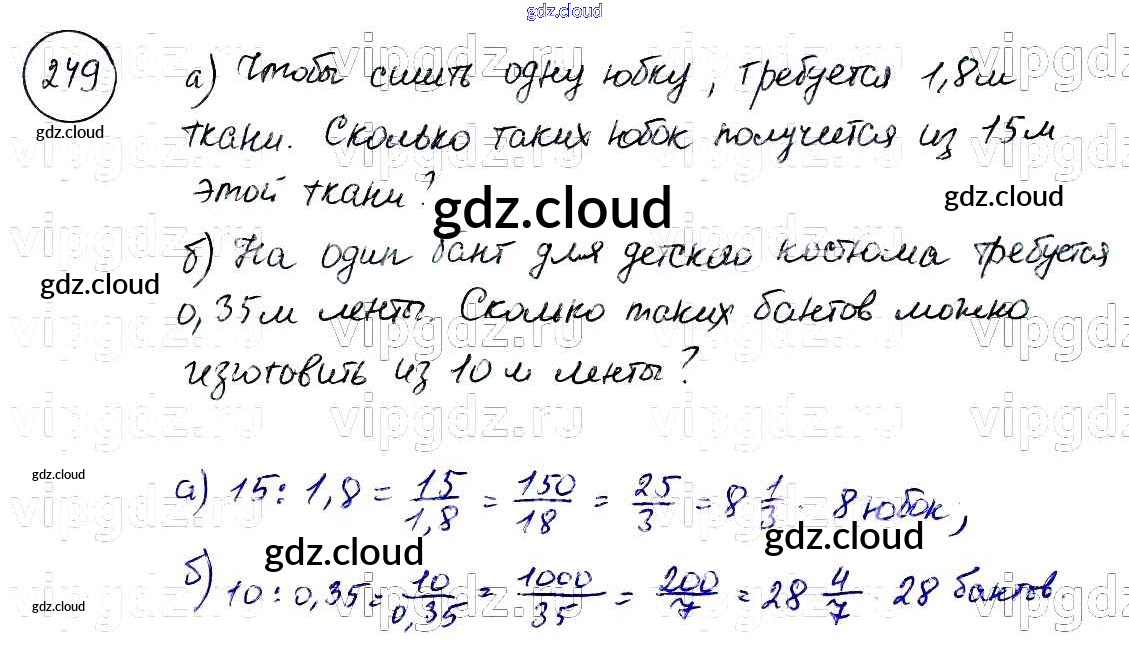 gdz.cloud
249
а) Чтобы сшить одну юбку, требуется 1,8м
ткани. Сколько таких юбок получится из 15м
этой ткани?
б) На один бант для детского костюма требуется
0,35м ленты. Сколько таких бантов можно
изготовить из 10 м ленты?
а) 15 : 1,8 = 15/1,8 = 150/18 = 25/3 = 8 1/3 . 8 юбок,
б) 10 : 0,35 = 10/0,35 = 1000/35 = 200/7 = 28 4/7 28 бантов
gdz.cloud
gdz.cloud
gdz.cloud
gdz.cloud
gdz.cloud
gdz.cloud
gdz.cloud
gdz.cloud
vipgdz.ru